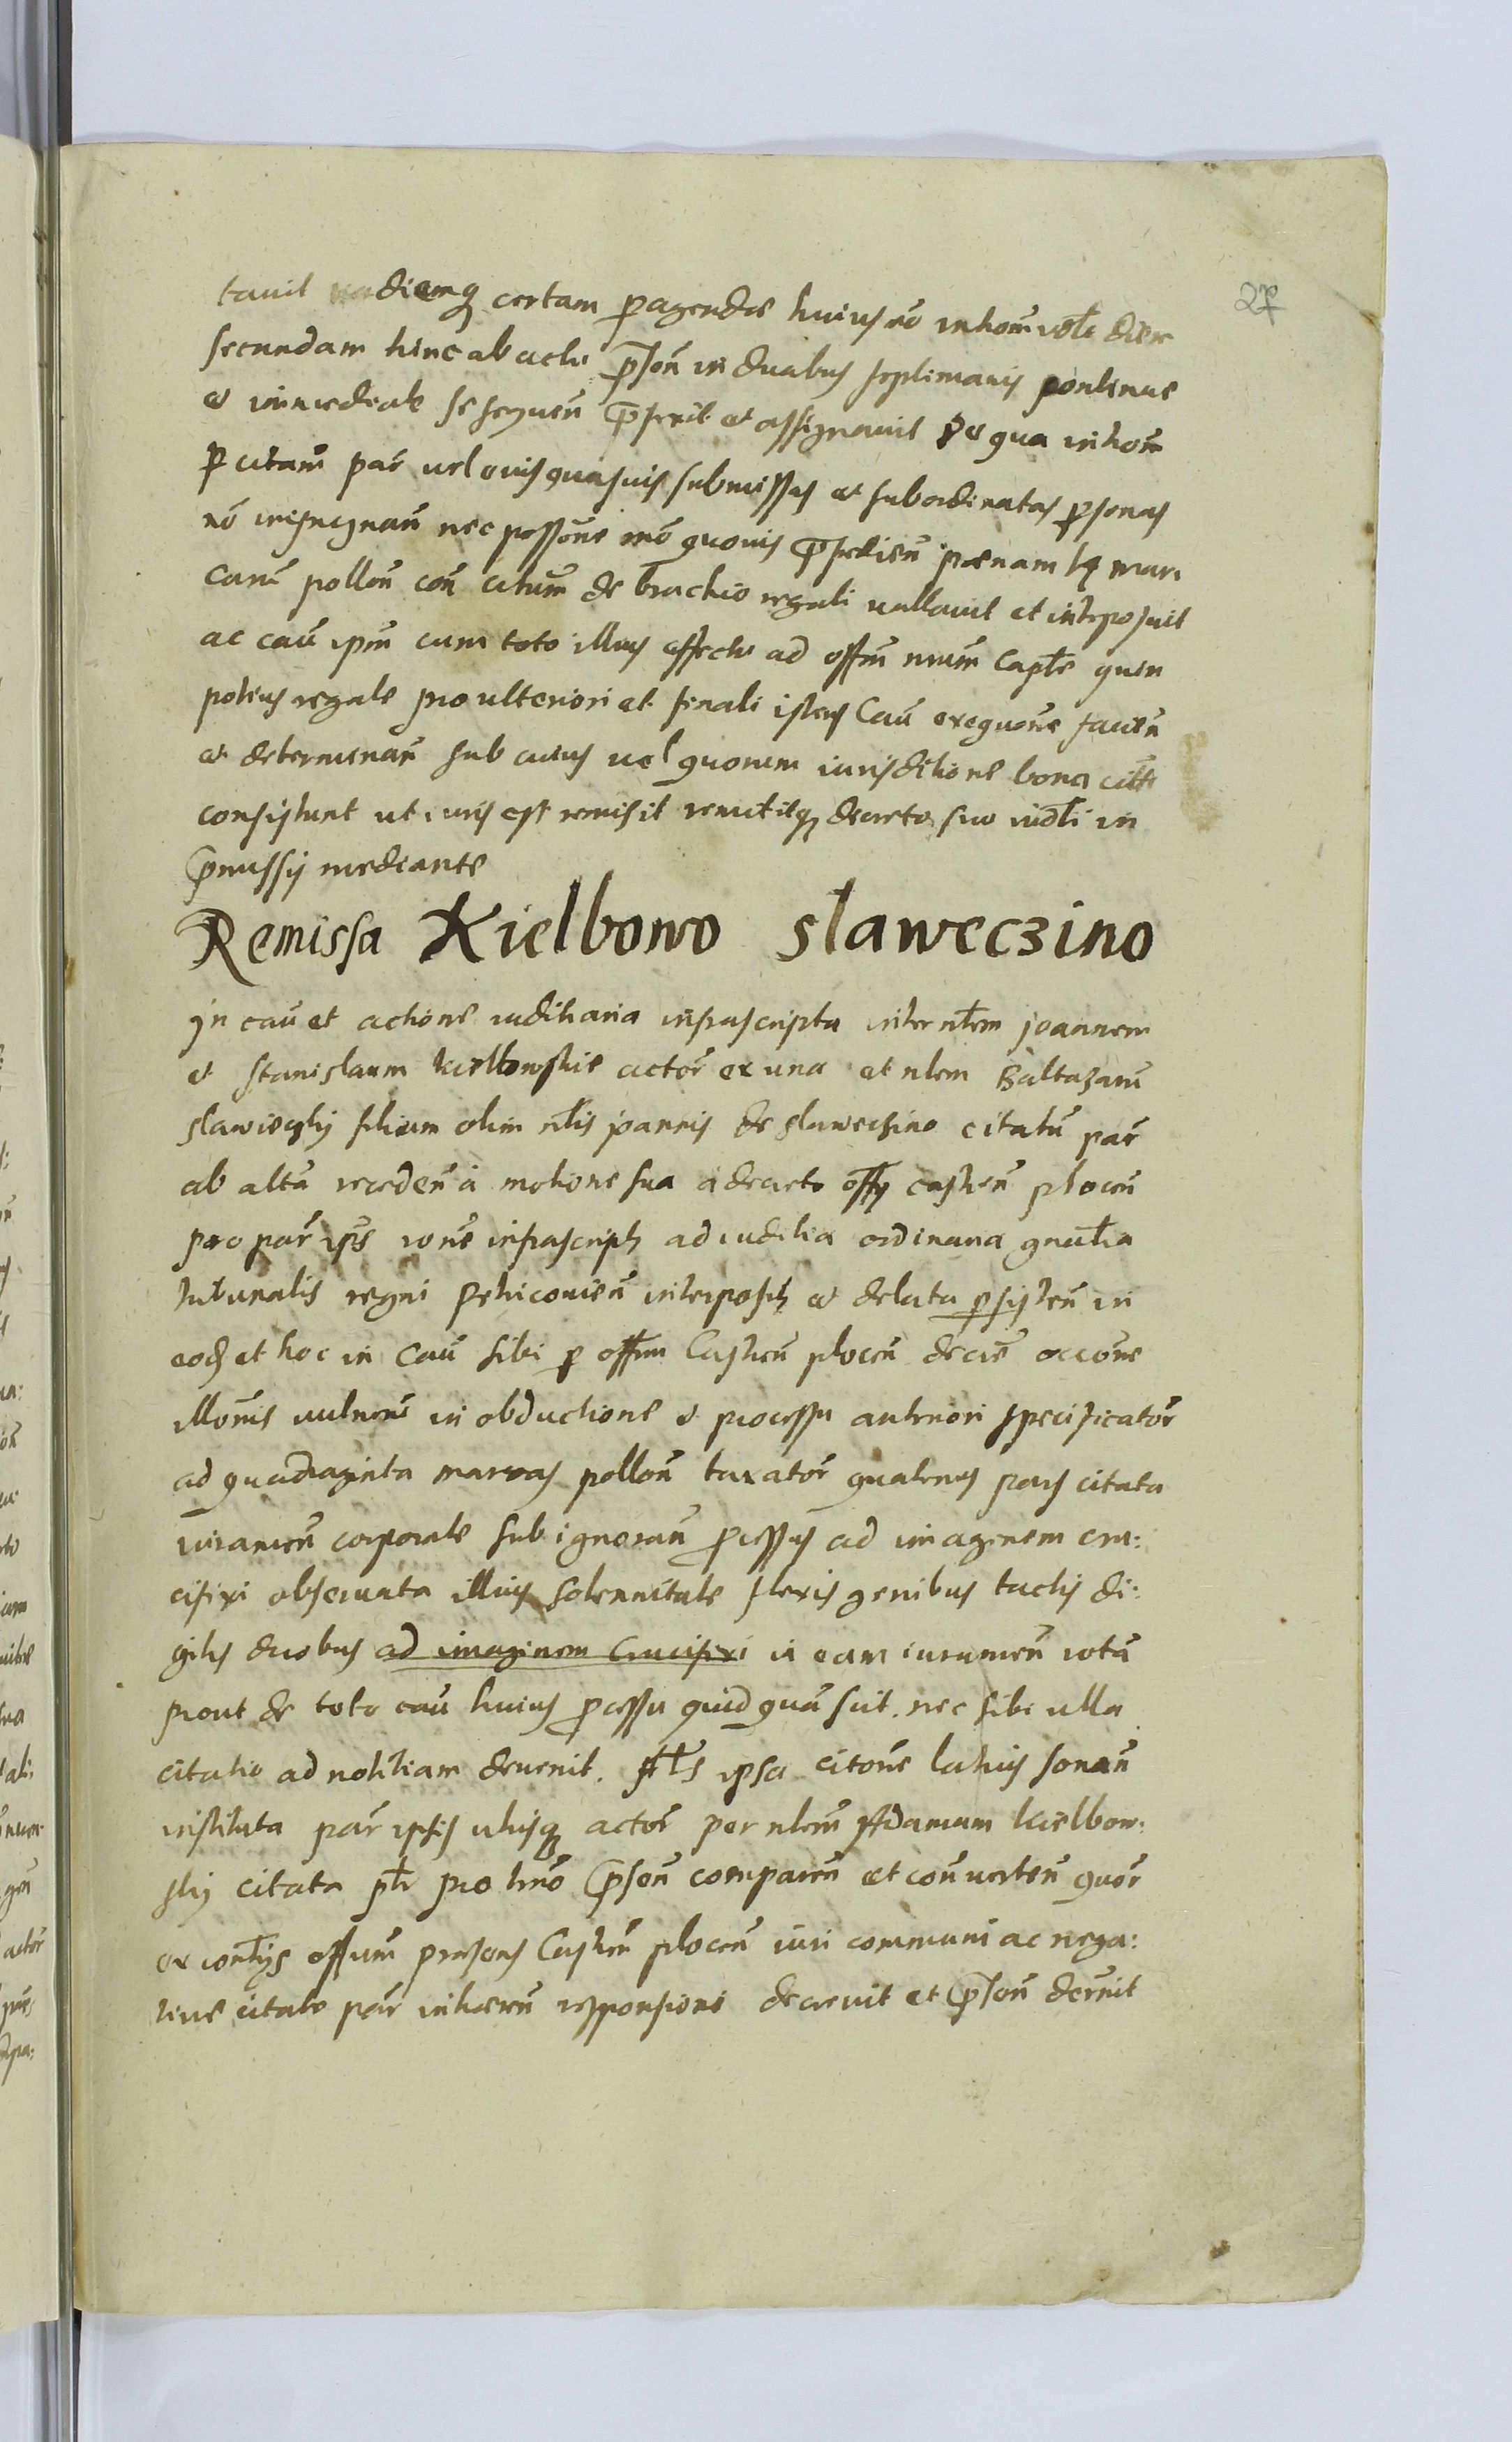 27
tauit diemq certam p agendae huiusmo inhom diem
secundam hinc ab actu pnsen in duabus septimanis continue
et immediate se sequen pfixit et assignauit De qua inhom
p citam par uel cuius quasuis submissas et subordinatas psonas
nō inpugnan nec possone mō quouis pfredien paenam mar
carū pollon con citum de brachio regali uallauit et interposuit
ac cau ipm cum toto illius effectu ad offm nrum Captle quin
potius regale pro ulteriori et finali istius Cau exequone facien
et determinan sub cuius uel quorum iurisditione bona citti
consistunt ut iuris est remisit remittitq decreto suo in
pmissij mediante
Remissa Kielbowo slaweczino
In cau et actione iuditiaria infrascripta inter nlem Joannem
et Stanislaum kielbowskie actor ex una et nlem Baltazarū
slawieczky filium olim nlis joannis de slaweczino citatū par
ab altā receden à motione sua à decreto offij castren plocen
pro par ips infrascript ad iuditia ordinaria gnalia
tribunalis regni Petricouien interposit et delata psisten in
eodē et hoc in Cau sibi p offm Castren plocen decre occōne
illonis uulnerū in obductione et processu anteriori specificator
ad quadraginta marcas pollon taxator quatenus pars citata
iuramen corporale sub ignoran pcessus ad imaginem cru:
cifixi obseruata illius solennitate flexis genibus tactis di:
gitis duobus ad imaginem Crucifixi in eam iuramen rotā
prout de toto cau huius pcessu quidquā sciit. nec sibi ulla
citatio ad notitiam deuenit. Als ipsa citone latius sonan
instituta par ipsis utisq actor per nlem Adamum kielbow:
skij citata ptr pro tmō pnsen comparen et conuerten quor
ex contijs offium praesens Castren plocen iuri communi ac nega:
tiue citate par inhaeren responsioni decreuit et pnsen decrnit